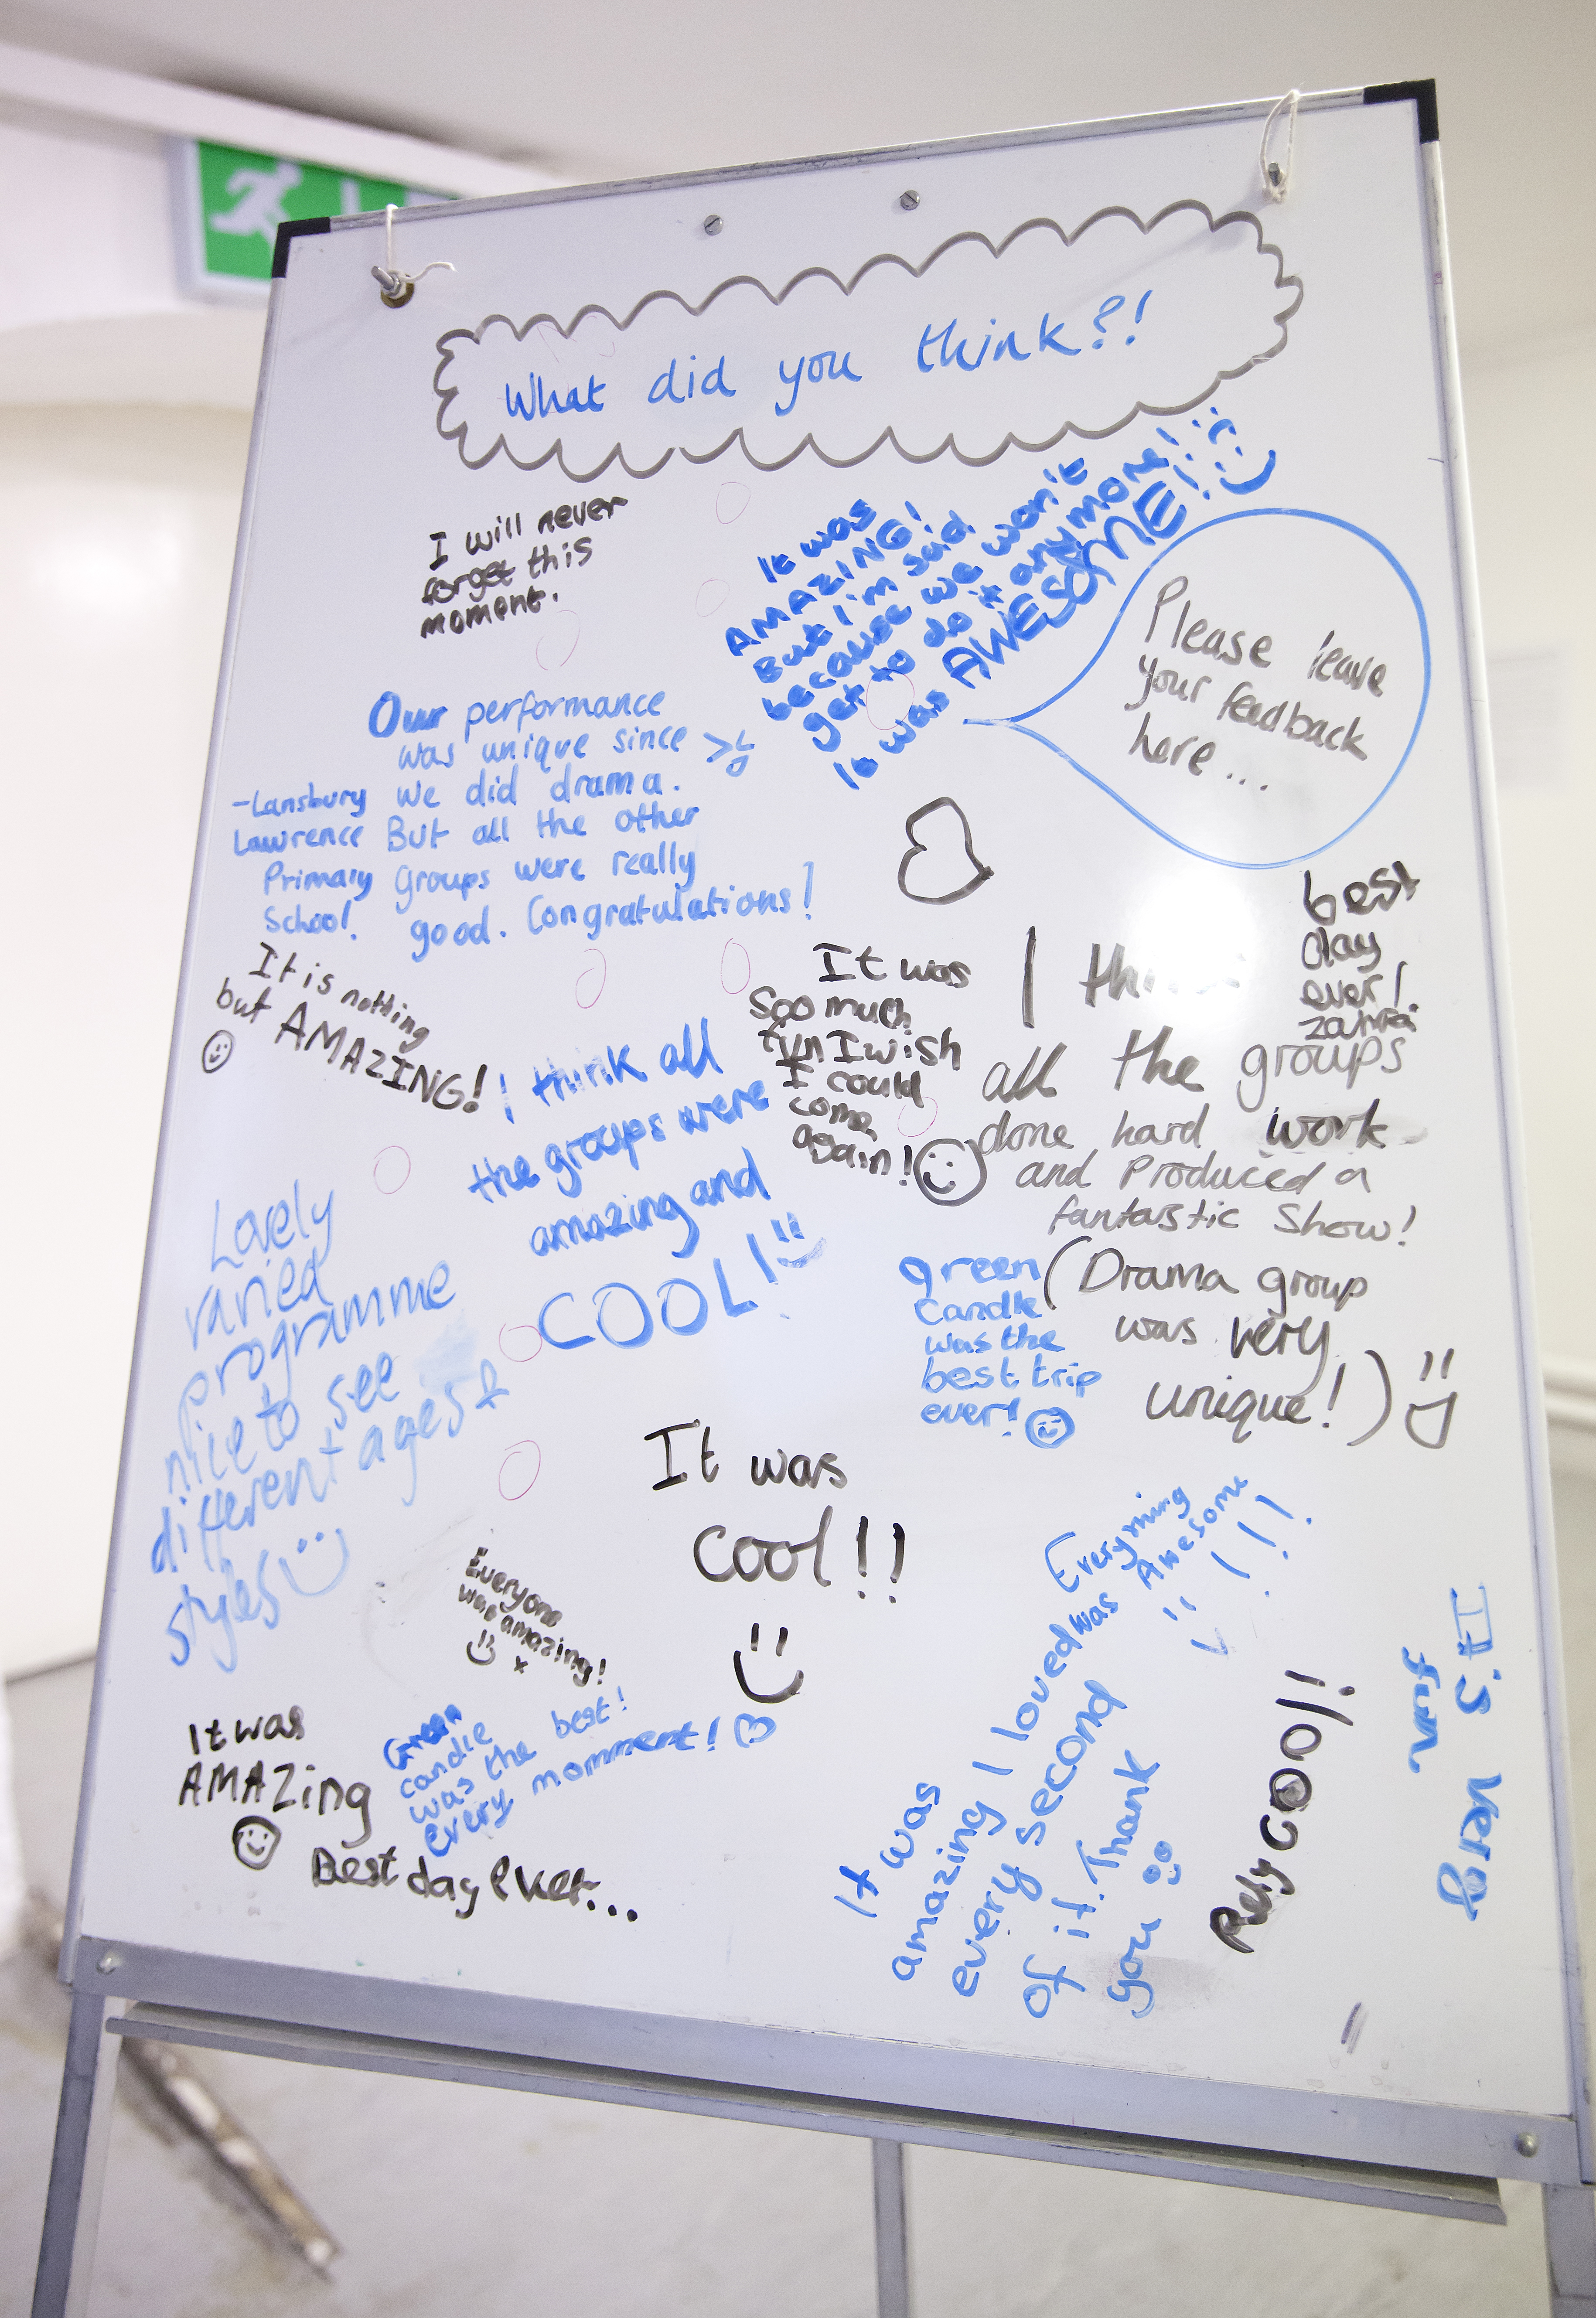 What did you think?!
I will never
forget this
moment.
It was
AMAZING!
But I'm said
because we won't
get to do it anymore!
It was AWESOME!!
Please leave
your feedback
here ...
Our performance
was unique since
we did drama.
But all the other
groups were really
good. Congratulations!
-Lansbury
Lawrence
Primary
School.
It is nothing
but AMAZING!
I think all
the groups were
amazing and
COOL!
It was
Soo much
fun I wish
I could
come
again!
best
day
ever!
zahra
I think
all the groups
done hard work
and Produced a
fantastic Show!
(Drama group
was very
unique!)
green
Candle
was the
best trip
ever!
Lovely
varied
programme
nice to see
different ages &
styles
It was
cool!!
Everyone
was amazing!
x
It was
AMAZing
Green
candle
was the best!
every momment!
Best day ever...
Everything
was Awesome
!!!
It was
amazing I loved
every second
of it. Thank
you
COOl!!
It's very
fun